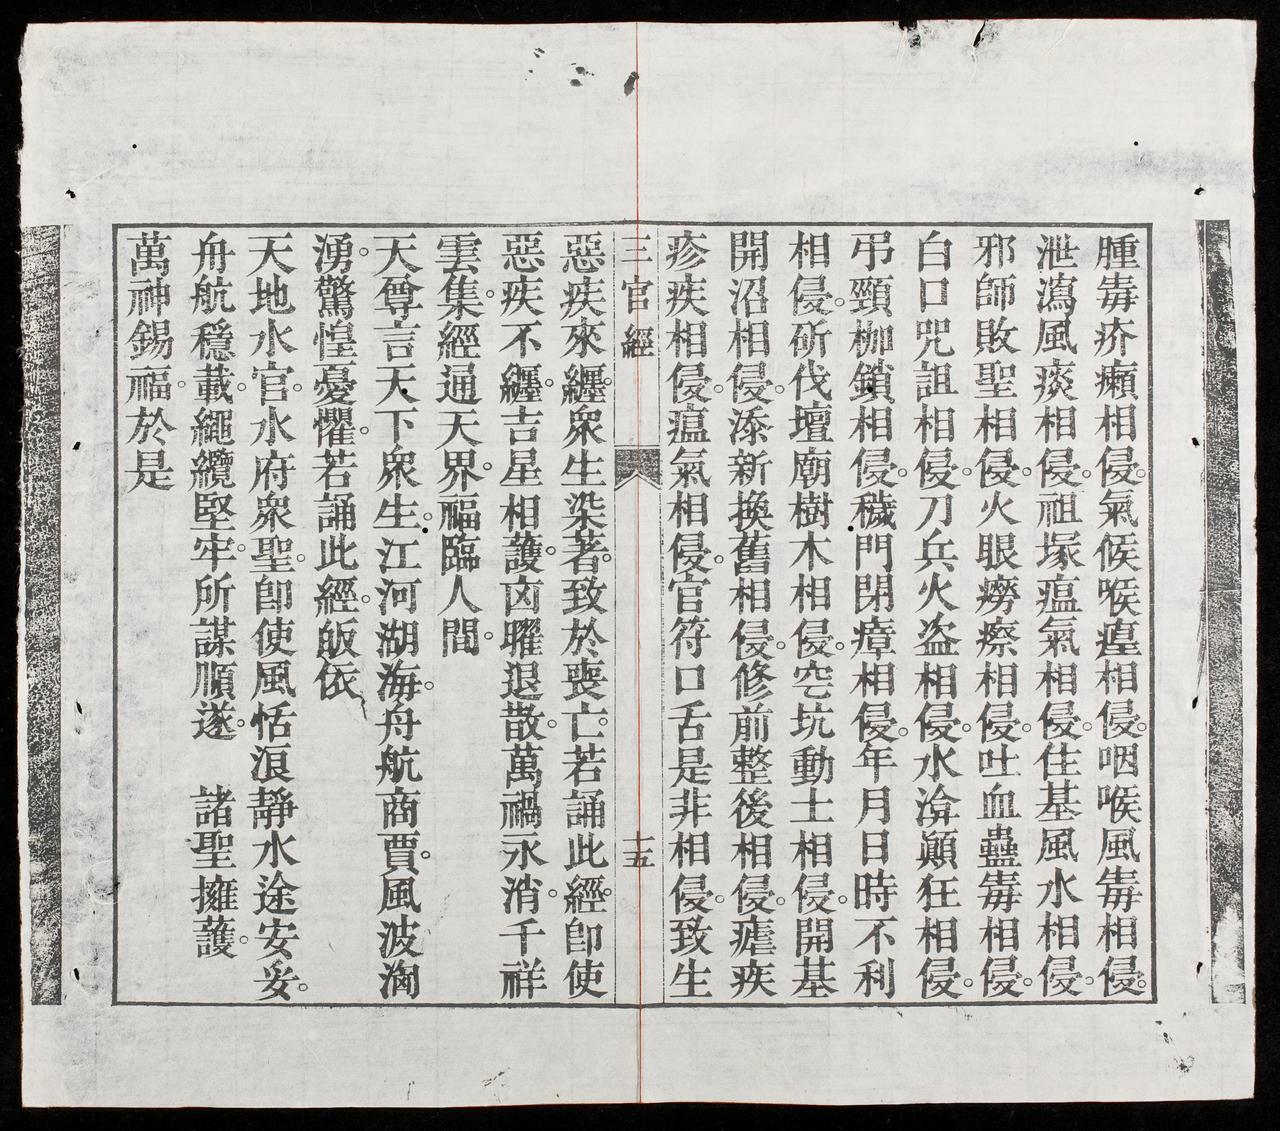 腫毒疥癩相侵。氣候喉瘴相侵。咽喉風毒相侵。
泄瀉風痰相侵。祖塚瘟氣相侵。住基風水相侵。
邪師敗聖相侵。火眼癆瘵相侵。吐血蠱毒相侵。
白口咒詛相侵。刀兵火盗相侵。水渰顚狂相侵。
弔頸枷鎖相侵。穢門閉瘴相侵。年月日時不利
相侵。斫伐壇廟樹木相侵。空坑動土相侵。開基
開沼相侵。添新換舊相侵。修前整後相侵。瘧疾
疹疾相侵。瘟氣相侵。官符口舌是非相侵。致生
三官經 十五
惡疾來纏。衆生染著。致於喪亡。若誦此經。卽使
惡疾不纏。吉星相護。凶曜退散。萬禍永消。千祥
雲集。經通天界。福臨人間。
天尊言天下衆生。江河湖海。舟航商賈。風波洶
湧。驚惶憂懼。若誦此經。皈依
天地水官。水府衆聖。卽使風恬浪靜水途安妥。
舟航穩載。繩纜堅牢。所謀順遂。 諸聖擁護。
萬神錫福。於是